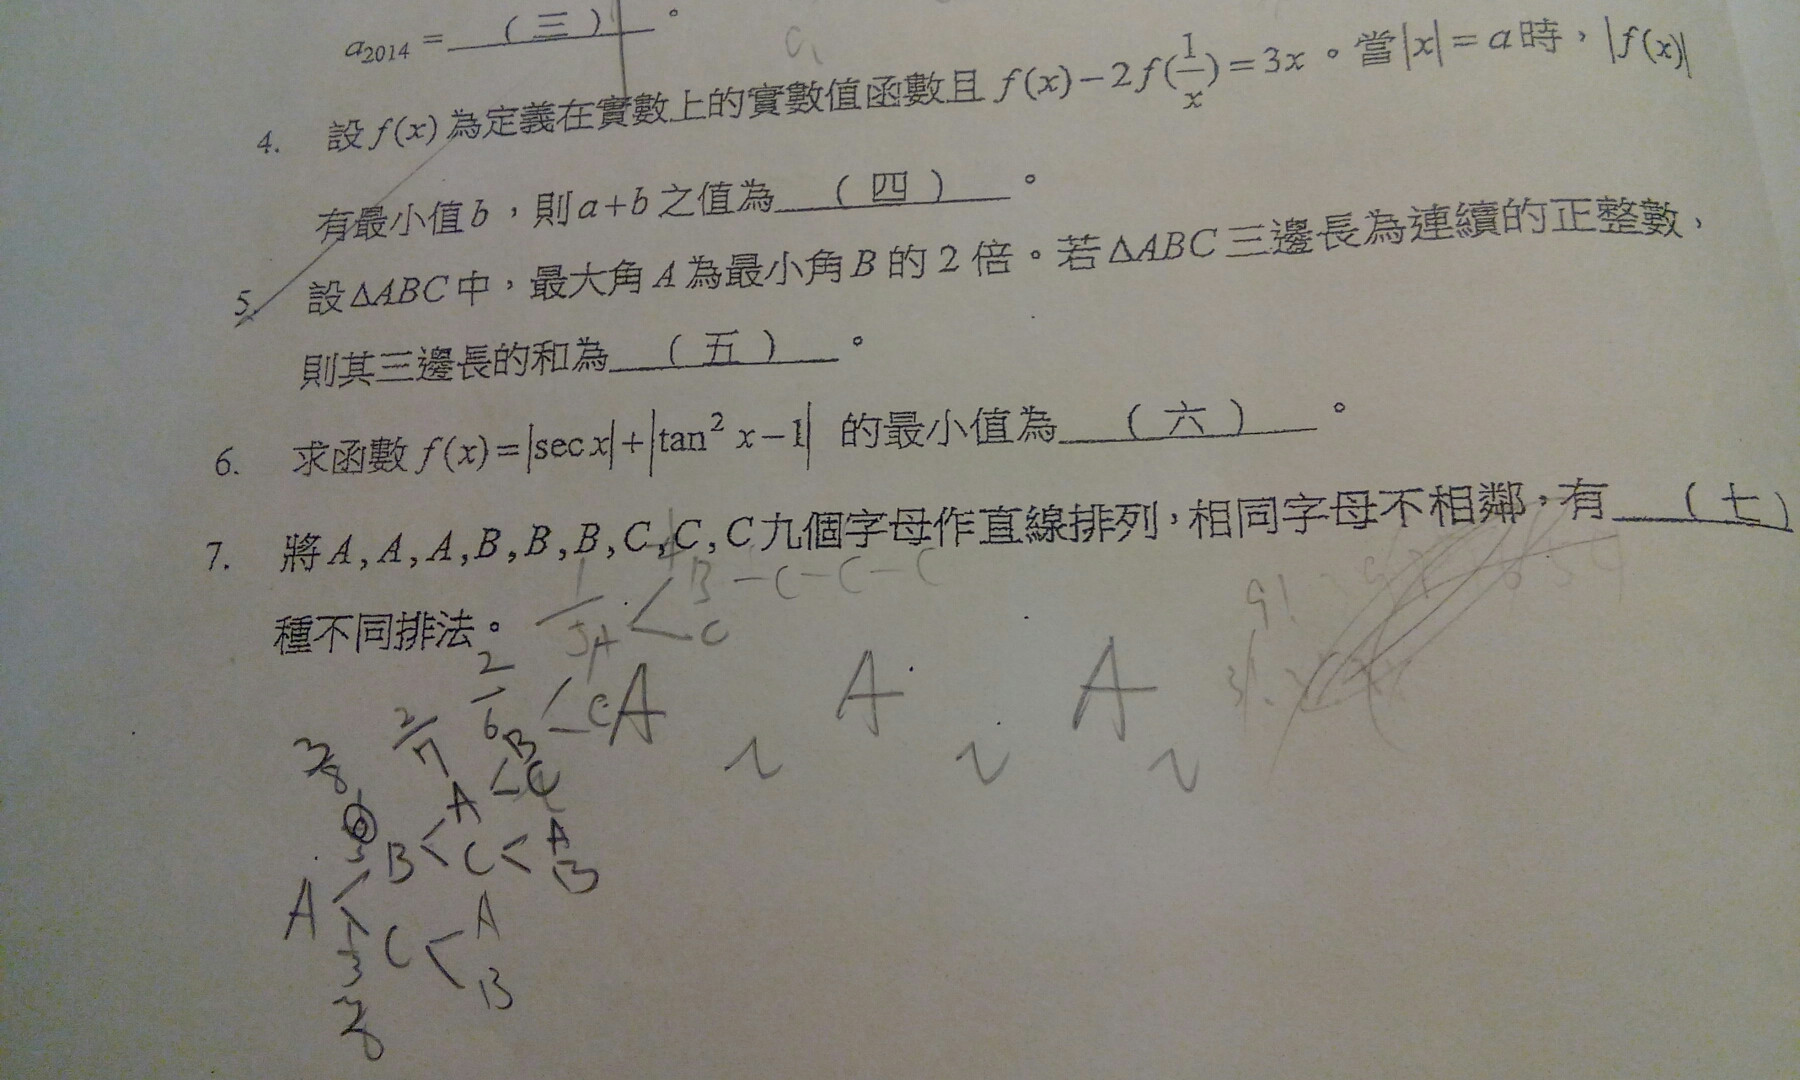 a₂₀₁₄ = （三） 。
4. 設 f(x) 為定義在實數上的實數值函數且 f(x)−2f(1/x)=3x 。當|x|=a時，|f(x)|
有最小值b，則a+b之值為 （四） 。
5. 設ΔABC中，最大角A為最小角B的2倍。若ΔABC三邊長為連續的正整數，
則其三邊長的和為 （五） 。
6. 求函數 f(x)=|sec x|+|tan² x−1| 的最小值為 （六） 。
7. 將A,A,A,B,B,B,C,C,C九個字母作直線排列，相同字母不相鄰，有 （七）
種不同排法。
B−C−C−C
C
9!
A A A
2/7
B
C
A
B C A
B
A
C A
B